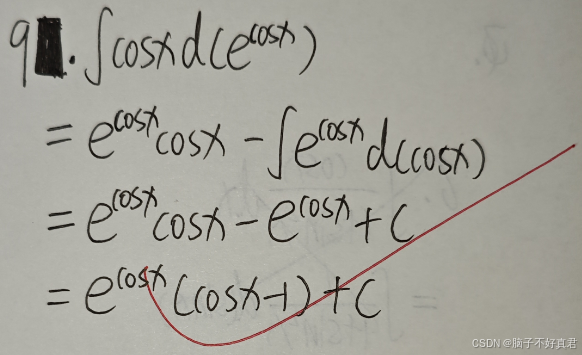 9█. ∫cosxd(e^cosx)
= e^cosx cosx - ∫e^cosx d(cosx)
= e^cosx cosx - e^cosx + C
= e^cosx (cosx-1) + C
CSDN @脑子不好真君